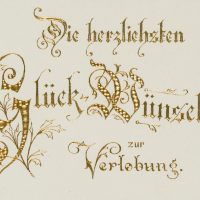 Die herzlichsten
Glück-Wünsch
zur
Verlobung.